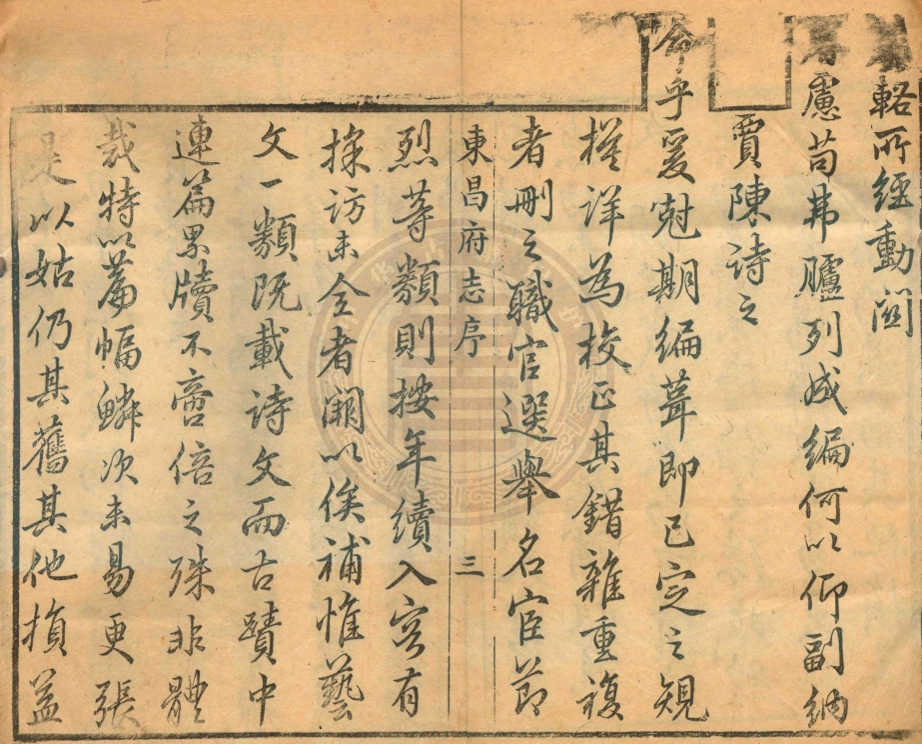 輅所經動關
慮苟弗臚列成編何以仰副納
賈陳詩之
命乎爰尅期編葺即已定之規
模詳為校正其錯雜重複
者刪之職官選舉名宦節
東昌府志序 三
烈等類則按年續入容有
採訪未全者闕以俟補惟藝
文一類既載詩文而古蹟中
連篇累牘不啻倍之殊非體
裁特以篇幅鱗次未易更張
是以姑仍其舊其他損益